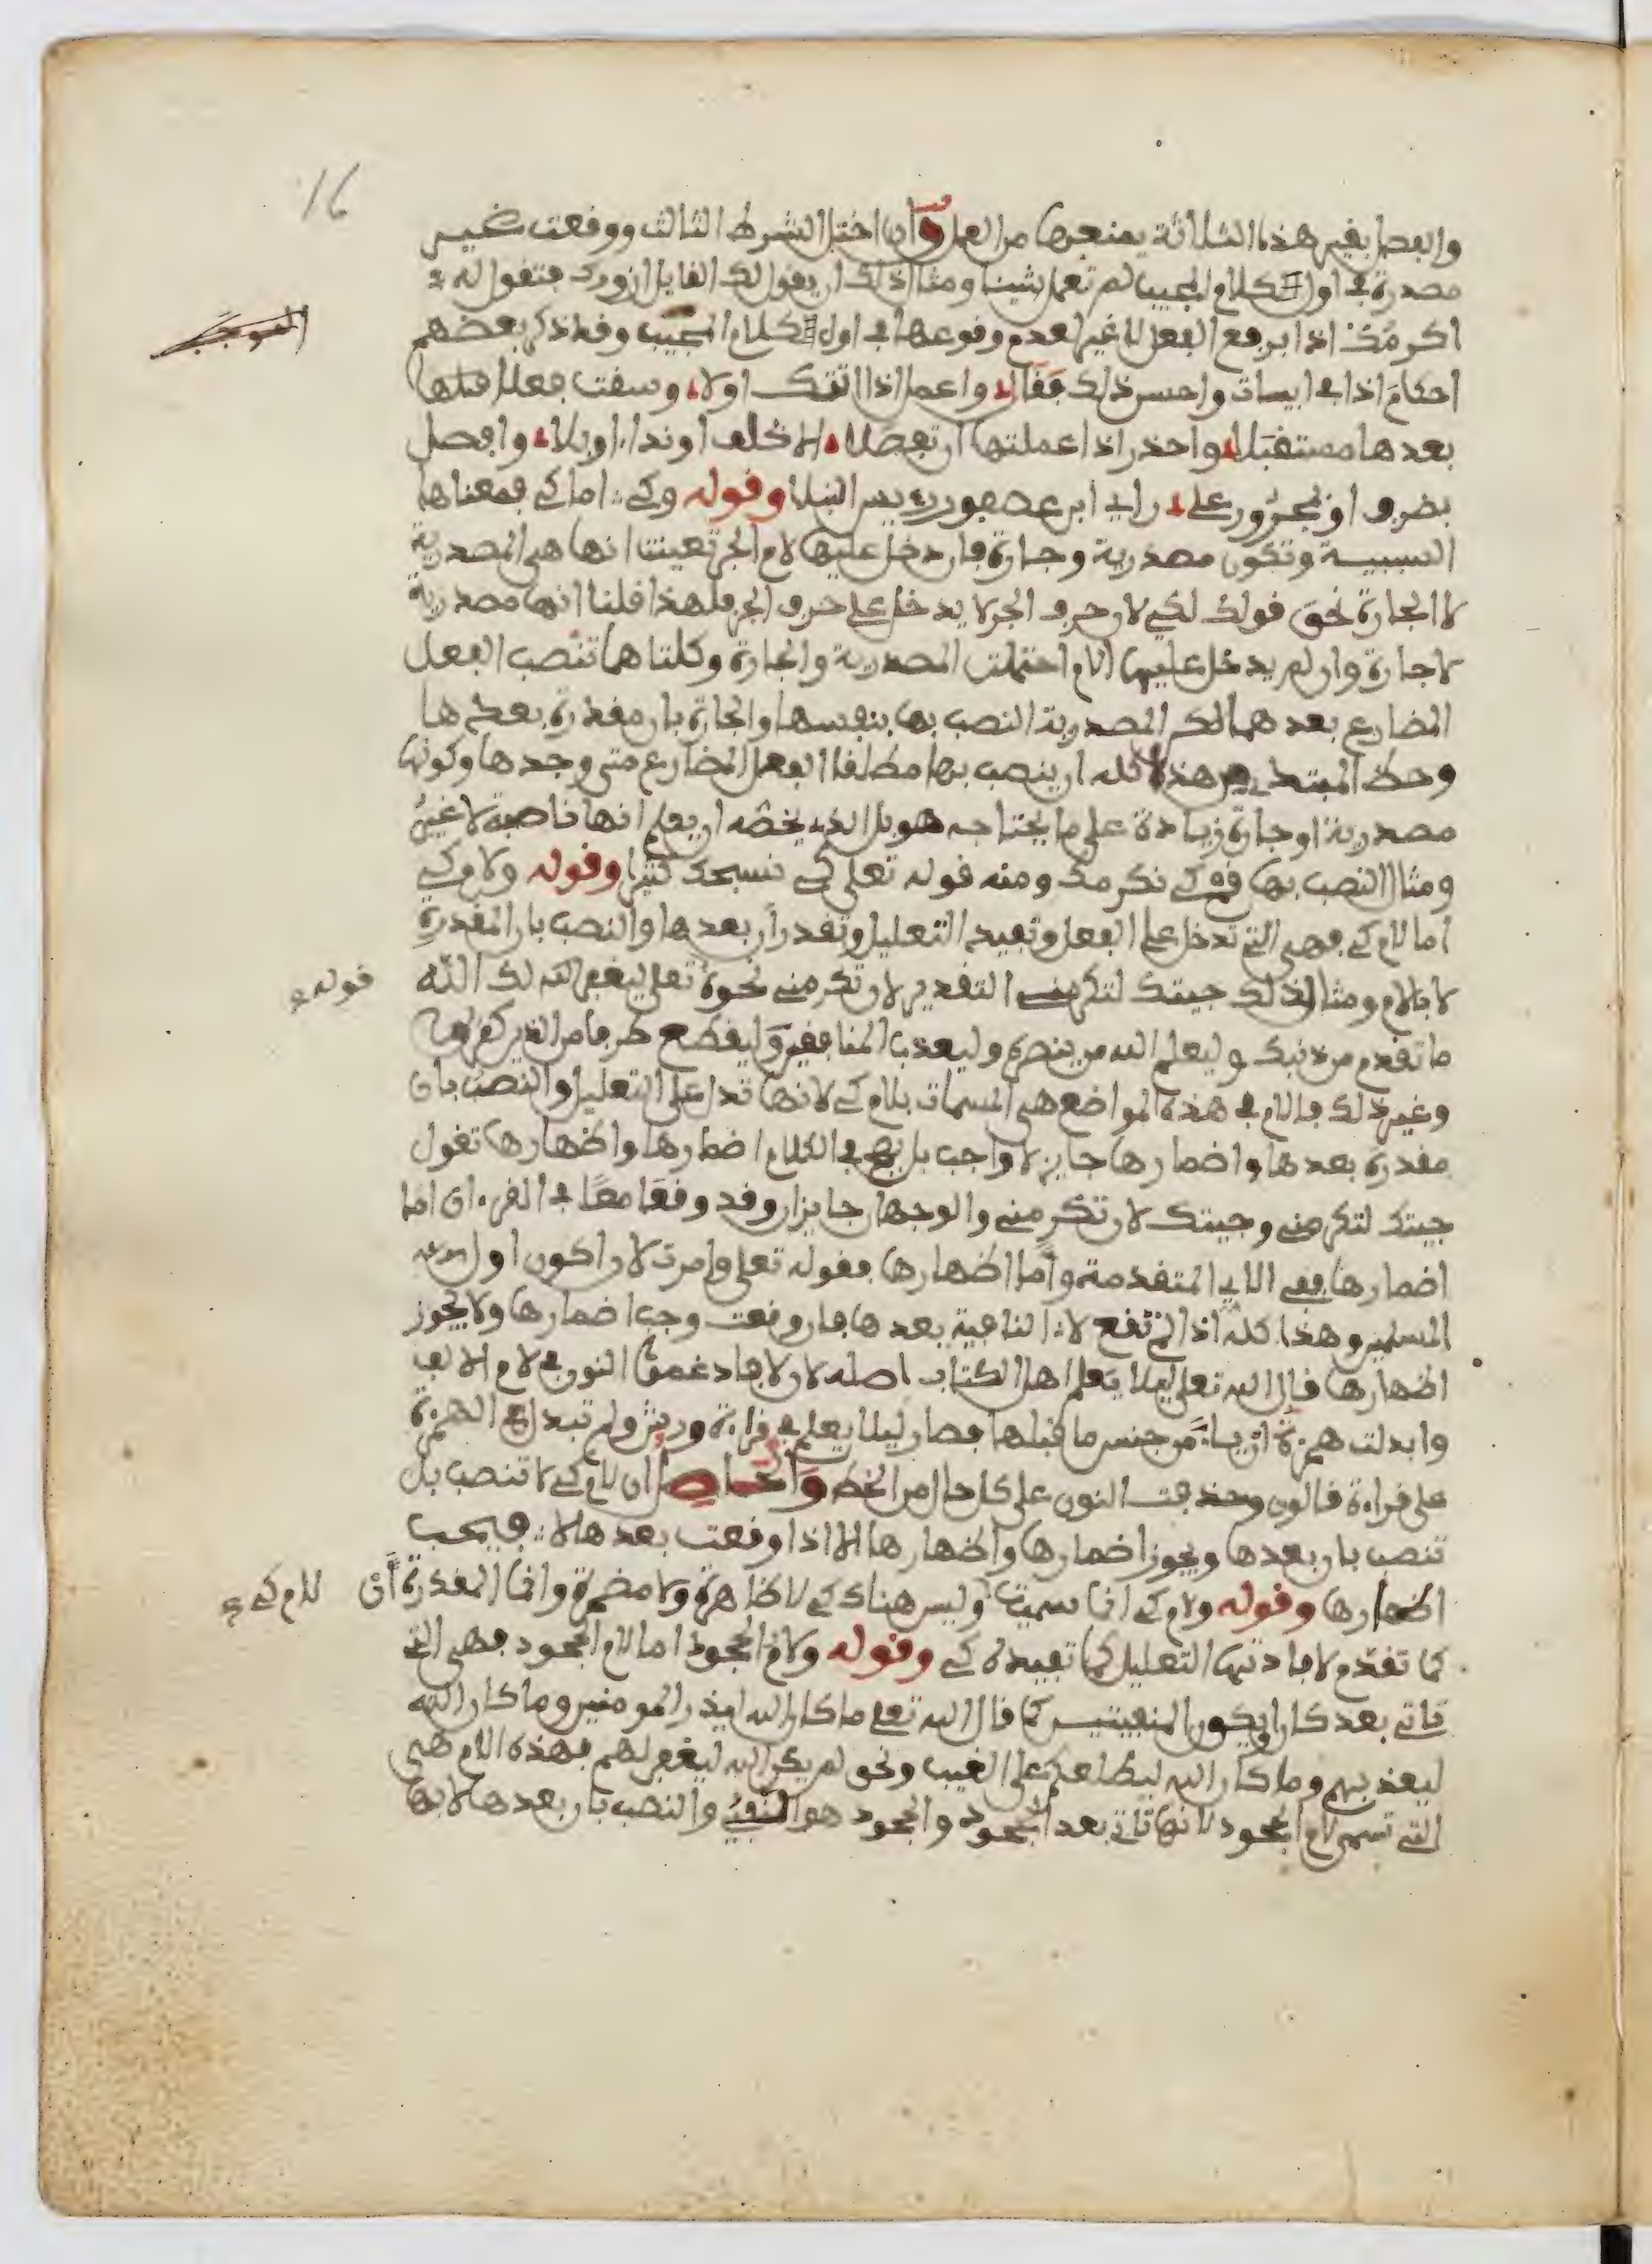 16
والفصل بغير هذه الثلاثة يمنعها من العمل وان اختل الشرط الثالث ووقعت غير
مصدرة في اول الكلام المجيب لم تعمل شيئا ومثال ذلك ان يقول لك القايل ازورك فتقول له
اكرمك اذا برفع الفعل لا غير لعدم وقوعها في اول الكلام المجيب وقد ذكر بعضهم
احكام اذا في ابيات واحسن ذلك فقال واعمل اذا اتتك اولا وسقت فعلا قبلها
بعدها مستقبلا واحذر اذا عملتها ان تفصلا الا بحلف او نداء او بلا وافصل
بضرف او بمجرور على راي ابن عصفور رييس النبلا وقوله وكي اما كي فمعناها
السببية وتكون مصدرية وجارة فان دخل عليها لام الجر تعينت انها هي المصدرية
لا الجارة نحو قولك لكي لان حرف الجر لا يدخل على حرف الجر فلهذا قلنا انها مصدرية
لا جارة وان لم يدخل عليها اللام احتملت المصدرية والجارة وكلتاهما تنصب الفعل
المضارع بعدهما لكن المصدرية النصب بها بنفسها والجارة بان مقدرة بعدها
وحظ المبتدي من هذا كله ان ينصب بها مطلقا الفعل المضارع متى وجدها وكونها
مصدرية او جارة زيادة على ما يحتاجه هو بل الذي يخصه ان يعلم انها ناصبة لا غير
ومثال النصب بها قم كي نكرمك ومنه قوله تعلى كي نسبحك كثيرا وقوله ولام كي
اما لام كي فهي التي تدخل على الفعل وتفيد التعليل وتقدر ان بعدها والنصب بان المقدرة
لا باللام ومثال ذلك جيتك لتكرمني التقدير لان تكرمني نحو قوله تعلى ليغفر لك الله
ما تقدم من ذنبك وليعلم الله من ينصره وليعذب المنافقين وليقطع طرفا من الذين كفروا
وغير ذلك فاللام في هذه المواضع هي المسمات بلام كي لانها تدل على التعليل والنصب بان
مقدرة بعدها واضمارها جايز لا واجب بل يصح في الكلام اضمارها واظهارها تقول
جيتك لتكرمني وجيتك لان تكرمني والوجهان جايزان وقد وقعا معا في القرءان اما
اضمارها ففي الاي المتقدمة واما اظهارها فقوله تعلى وامرت لان اكون اول
المسلمين وهذا كله اذا لم تقع لا النافية بعدها فان وقعت وجب اضمارها ولا يجوز
اظهارها قال الله تعلى ليلا يعلم اهل الكتاب اصله لان لا فادغمت النون في لام الالف
وابدلت همزة ان ياء من جنس ما قبلها فصار ليلا يعلم في قراءة ورش ولم تبدل الهمزة
على قراءة قالون وحذفت النون على كل حال من الخط والحاصل ان لام كي لا تنصب بل
تنصب بان بعدها ويجوز اضمارها واظهارها الا اذا وقعت بعدها لا فيجب
اظهارها وقوله ولام كي انما سميت لام كي وليس هناك كي لا ظاهرة ولا مضمرة وانما المقدرة ان
كما تقدم لافادتها التعليل كما تفيده كي وقوله ولام الجحود اما لام الجحود فهي التي
تاتي بعد كان او يكون المنفيتين كما قال الله تعلى ما كان الله ليذر المومنين وما كان الله
ليعذبهم وما كان الله ليطلعكم على الغيب ونحو لم يكن الله ليغفر لهم فهذه اللام هي
التي تسمى لام الجحود لانها تاتي بعد الجحود والجحود هو النفي والنصب بان بعدها لا بها